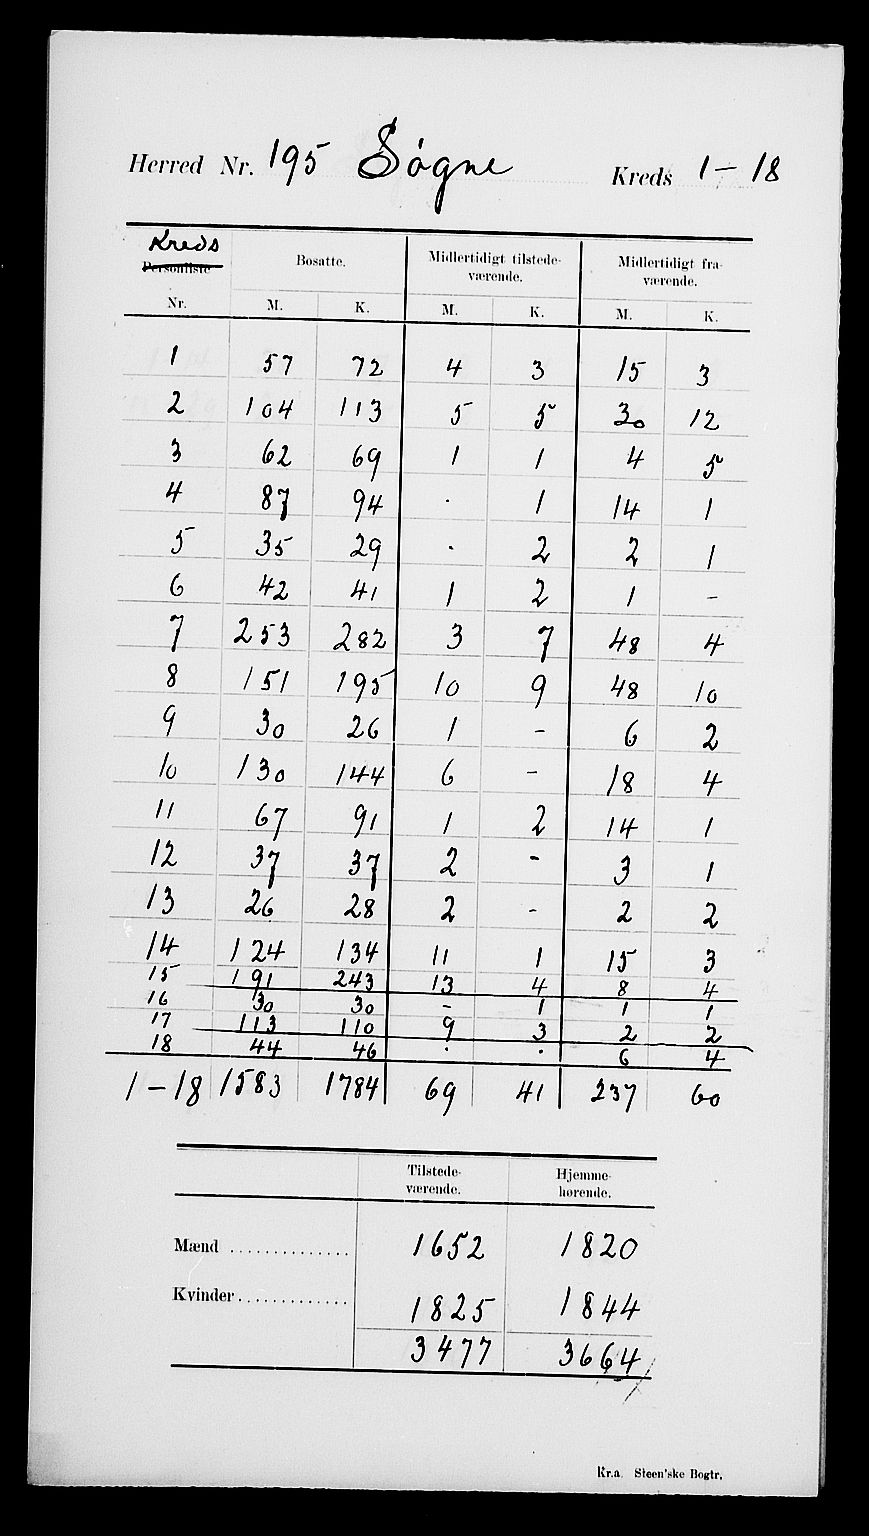 Herred Nr. 195 Søgne Kreds 1-18
Kreds
Personliste Bosatte. Midlertidigt tilstede- Midlertidigt fra-
værende. værende.
Nr. M. K. M. K. M. K.
1 57 72 4 3 15 3
2 104 113 5 5 30 12
3 62 69 1 1 4 5
4 87 94 . 1 14 1
5 35 29 . 2 2 1
6 42 41 1 2 1 -
7 253 282 3 7 48 4
8 151 195 10 9 48 10
9 30 26 1 - 6 2
10 130 144 6 - 18 4
11 67 91 1 2 14 1
12 37 37 2 - 3 1
13 26 28 2 - 2 2
14 124 134 11 1 15 3
15 191 243 13 4 8 4
16 30 30 - 1 1 1
17 113 110 9 3 2 2
18 44 46 . . 6 4
1-18 1583 1784 69 41 237 60
Tilstede- Hjemme-
værende. hørende.
Mænd .............. 1652 1820
Kvinder............. 1825 1844
3477 3664
Kr.a. Steen'ske Bogtr.